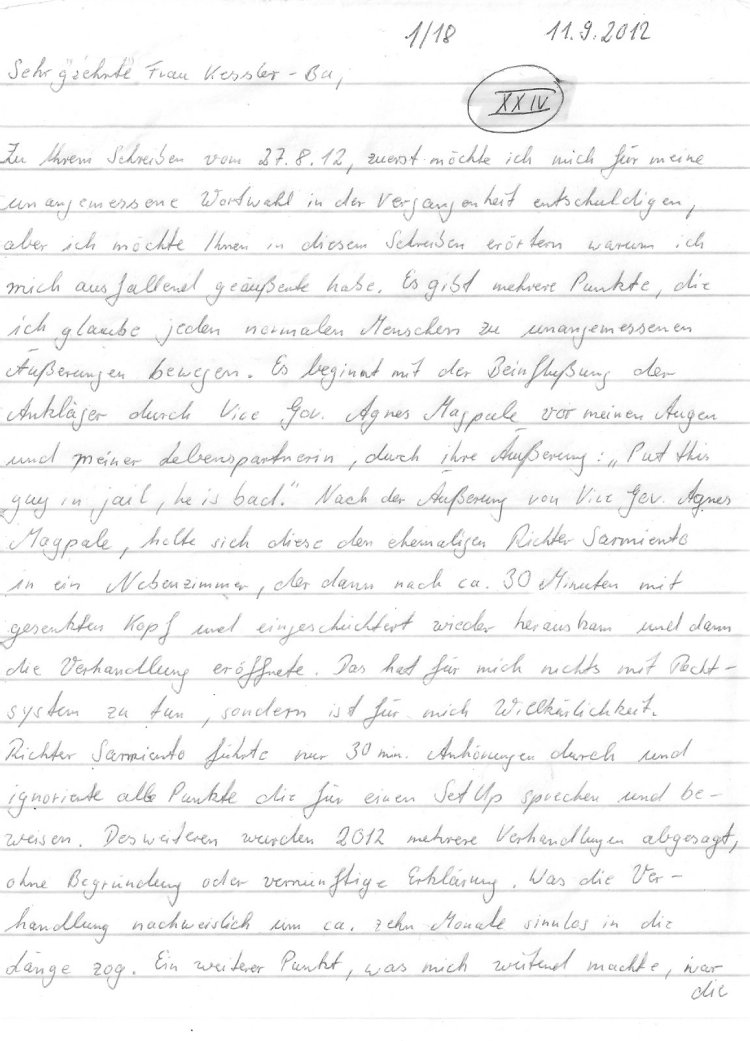 1/18 11.9.2012
Sehr "gzehrte" Frau Kessler-Bu,
XXIV
Zu Ihrem Schreiben vom 27.8.12, zuerst möchte ich mich für meine
unangemessene Wortwahl in der Vergangenheit entschuldigen,
aber ich möchte Ihnen in diesem Schreiben erörtern warum ich
mich ausfallend geäußerte habe. Es gibt mehrere Punkte, die
ich glaube jeden normalen Menschen zu unangemessenen
Äußerungen bewegen. Es beginnt mit der Beinflußung der
Ankläger durch Vice Gov. Agnes Magpale vor meinen Augen
und meiner Lebenspartnerin, durch ihre Äußerung: „Put this
guy in jail, he is bad." Nach der Äußerung von Vice Gov. Agnes
Magpale, holte sich diese den ehemaligen Richter Sarmiento
in ein Nebenzimmer, der dann nach ca. 30 Minuten mit
gesenkten Kopf und eingeschüchtert wieder herauskam und dann
die Verhandlung eröffnete. Das hat für mich nichts mit Recht-
system zu tun, sondern ist für mich Willkürlichkeit.
Richter Sarmiento führte nur 30 min. Anhörungen durch und
ignorierte alle Punkte die für einen SetUp sprechen und be-
weisen. Desweiteren wurden 2012 mehrere Verhandlungen abgesagt,
ohne Begründung oder vernünftige Erklärung. Was die Ver-
handlung nachweislich um ca. zehn Monate sinnlos in die
Länge zog. Ein weiterer Punkt, was mich wütend machte, war
die